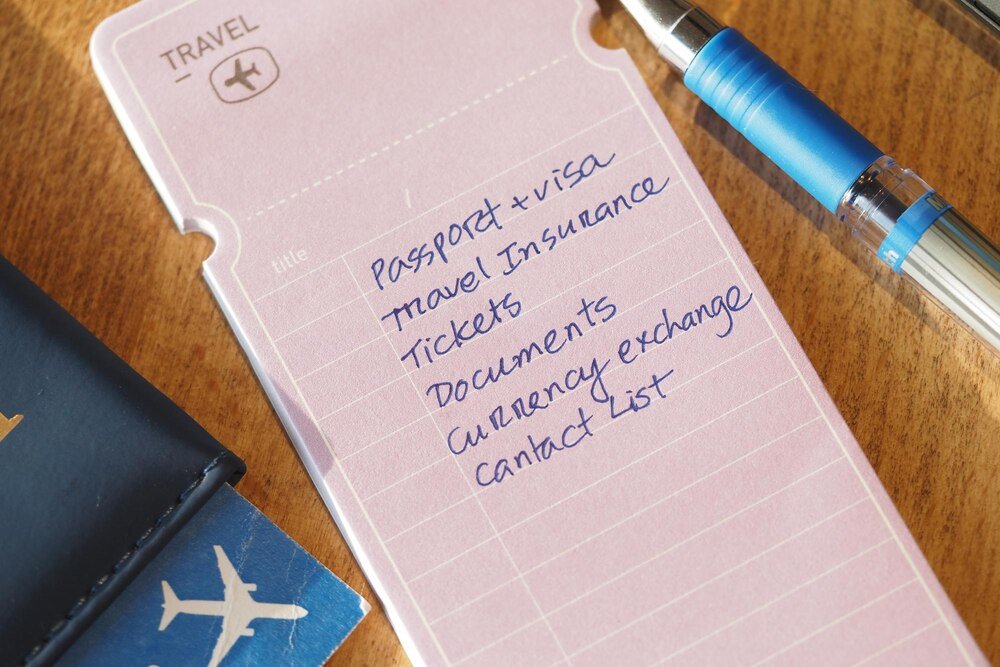 TRAVEL
title
Passport + visa
Travel Insurance
Tickets
Documents
currency exchange
cantact List